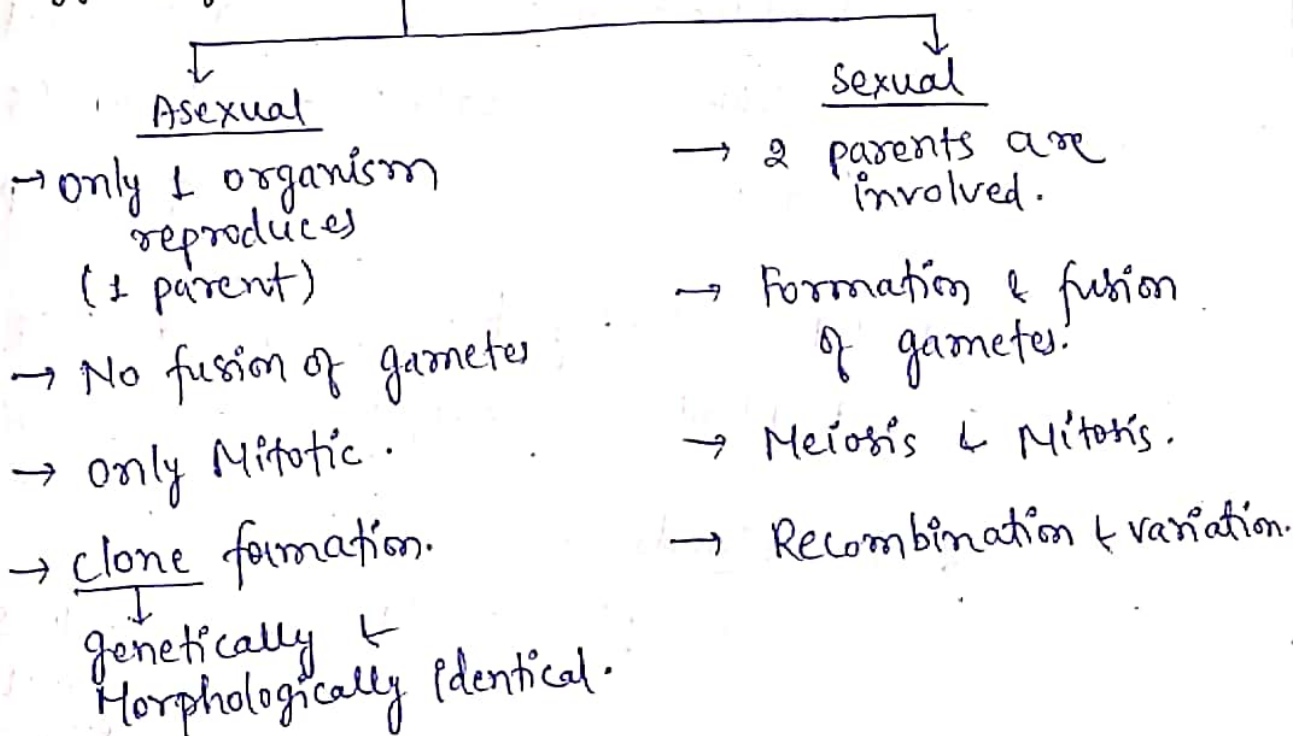 Asexual
→ only 1 organism
reproduces
(1 parent)
→ No fusion of gametes
→ only Mitotic.
→ clone formation.
↓
genetically &
Morphologically Identical.
Sexual
→ 2 parents are
involved.
→ Formation & fusion
of gametes.
→ Meiosis & Mitosis.
→ Recombination & variation.